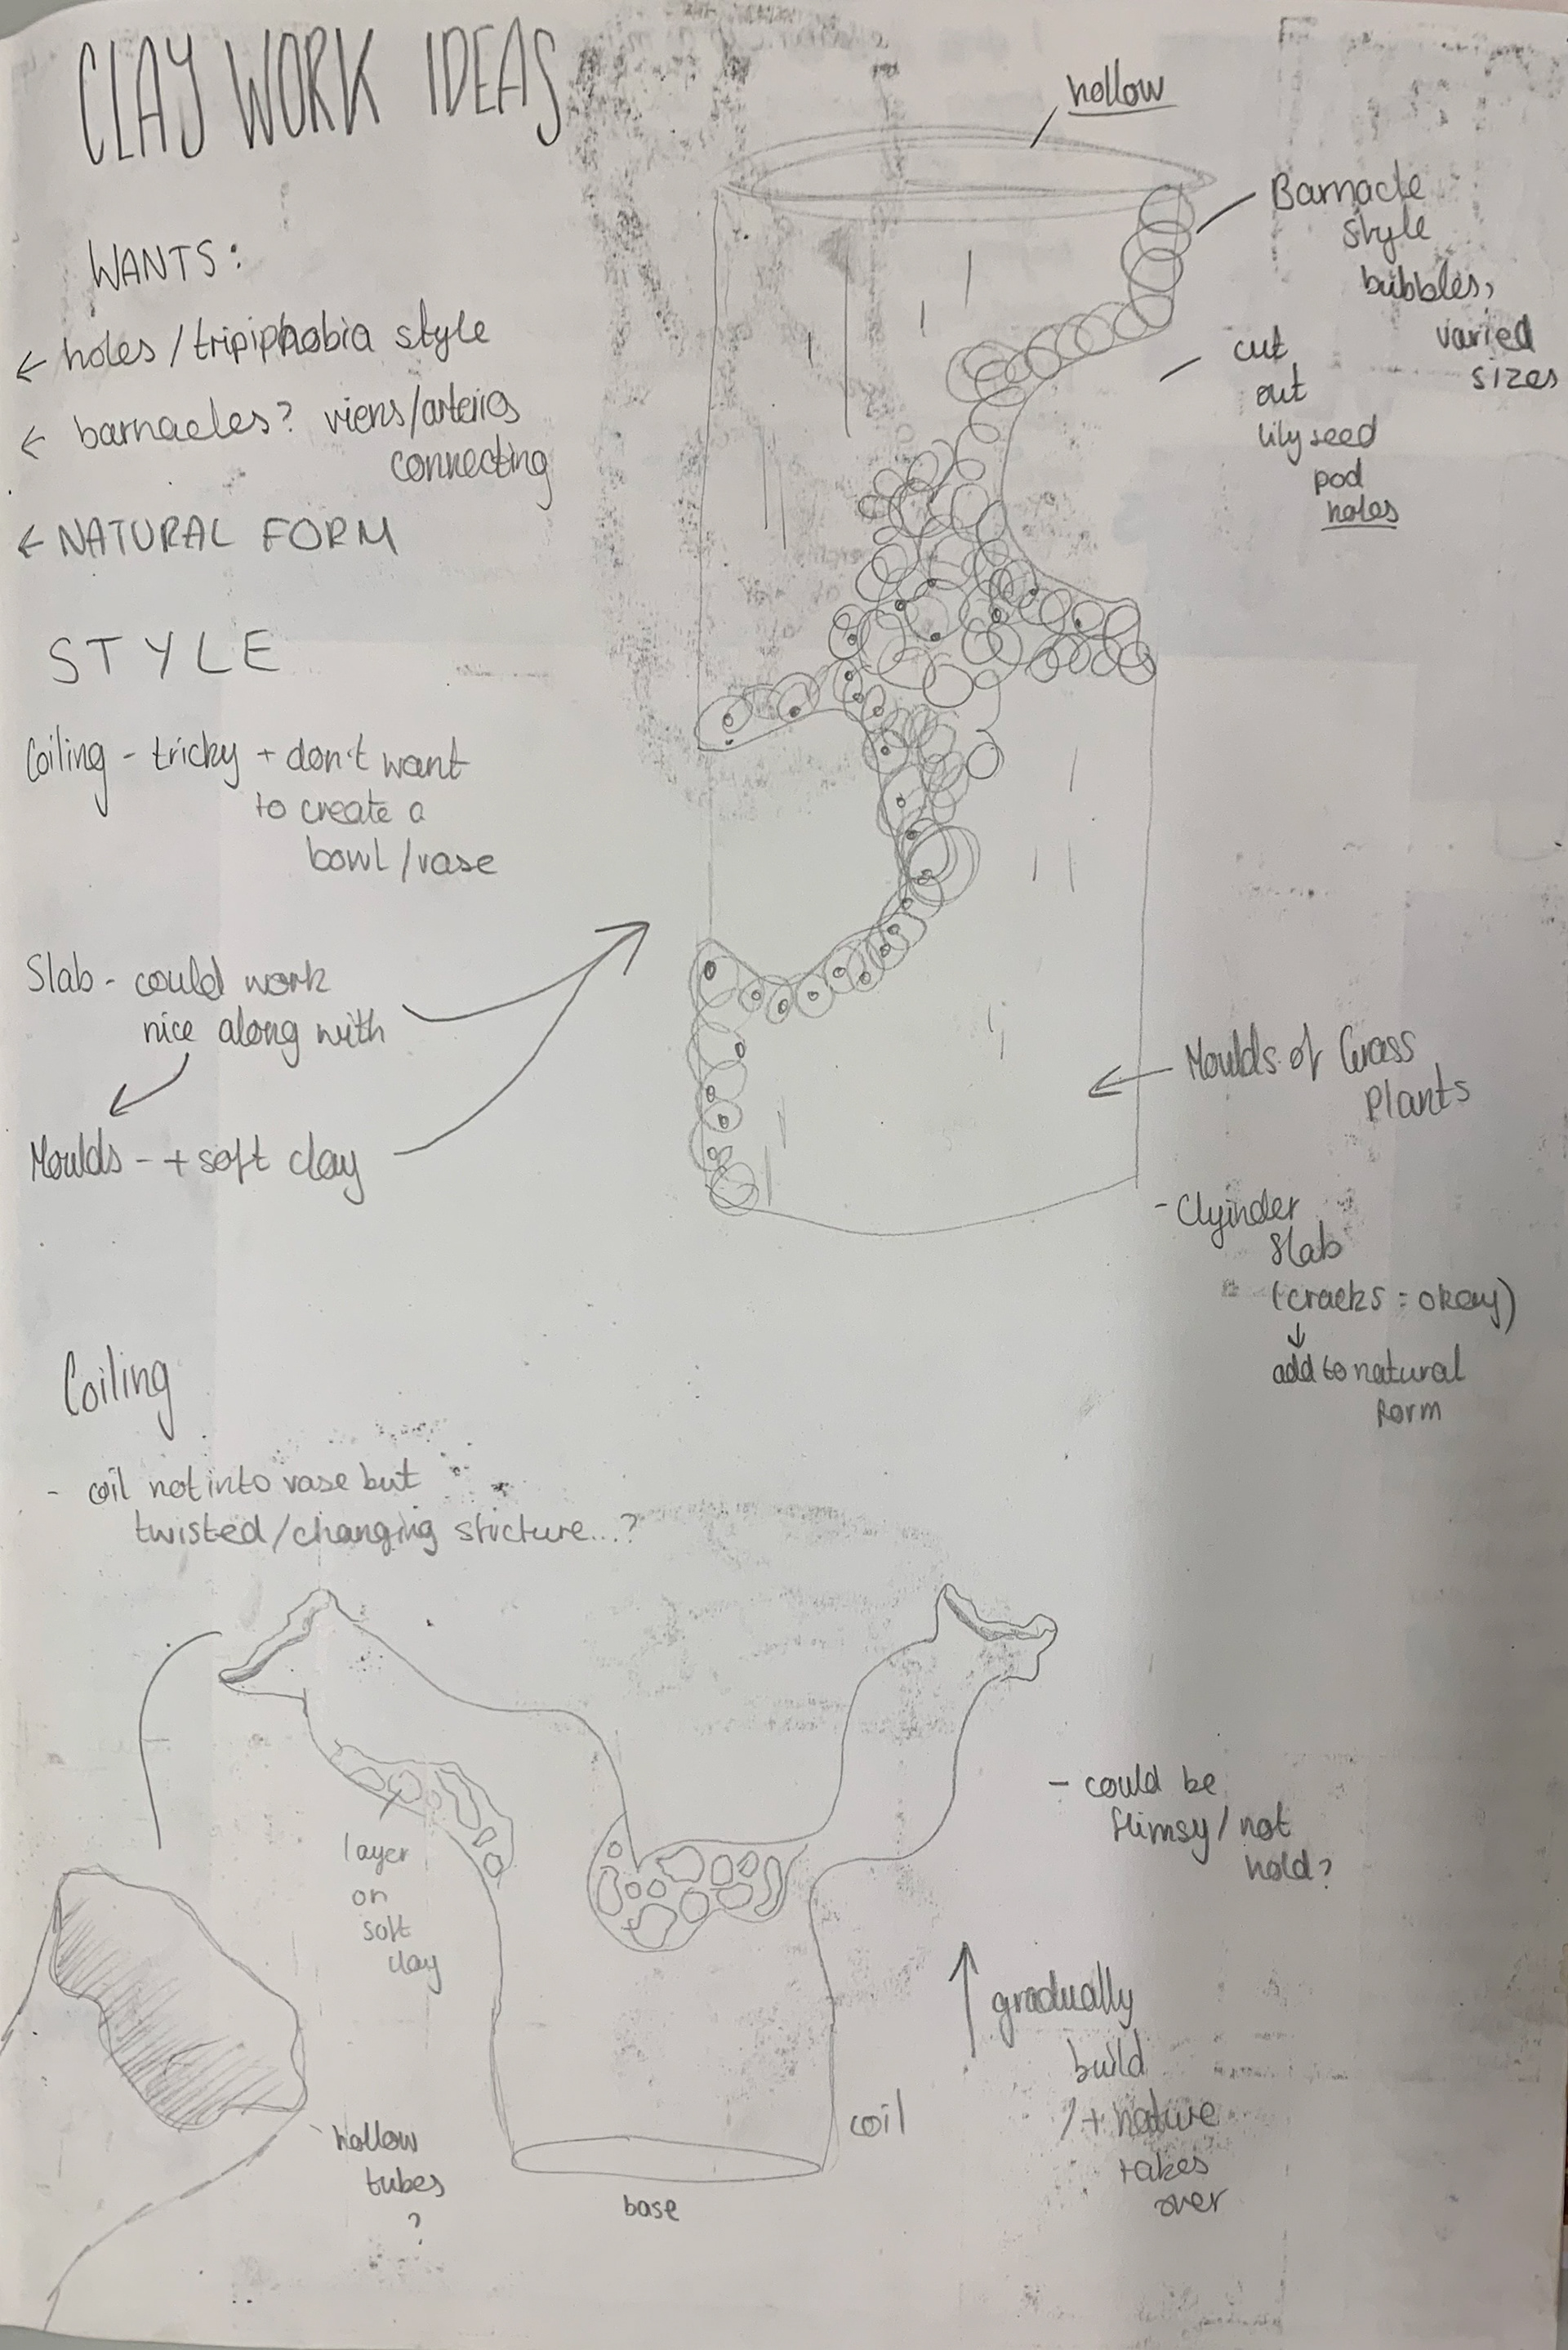 CLAY WORK IDEAS
hollow
Barnacle
style
bubbles,
varied
sizes
cut
out
lily seed
pod
holes
WANTS:
← holes / tripiphobia style
← barnacles? viens/arteries
connecting
← NATURAL FORM
STYLE
Coiling - tricky + don't want
to create a
bowl / vase
Slab - could work
nice along with
Moulds - + soft clay
Moulds of Grass
Plants
- Clyinder
Slab
(cracks = okay)
↓
add to natural
form
Coiling
- coil not into vase but
twisted/changing structure...?
layer
on
soft
clay
- could be
flimsy / not
hold?
gradually
build
/ + nature
takes
over
coil
base
hollow
tubes
?